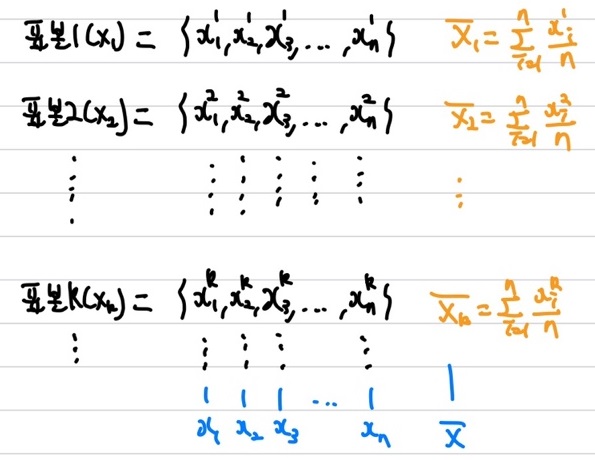 표본1(x₁) = {x₁¹, x₂¹, x₃¹, ..., xₙ¹} X̅₁ = Σᵢ₌₁ⁿ xᵢ¹/n
표본2(x₂) = {x₁², x₂², x₃², ..., xₙ²} X̅₂ = Σᵢ₌₁ⁿ xᵢ²/n
⋮ ⋮ ⋮ ⋮ ⋮ ⋮ ⋮
표본k(xₖ) = {x₁ᵏ, x₂ᵏ, x₃ᵏ, ..., xₙᵏ} X̅ₖ = Σᵢ₌₁ⁿ xᵢᵏ/n
⋮ ⋮ ⋮ ⋮ ⋮
| | | ... | |
x₁ x₂ x₃ xₙ X̅